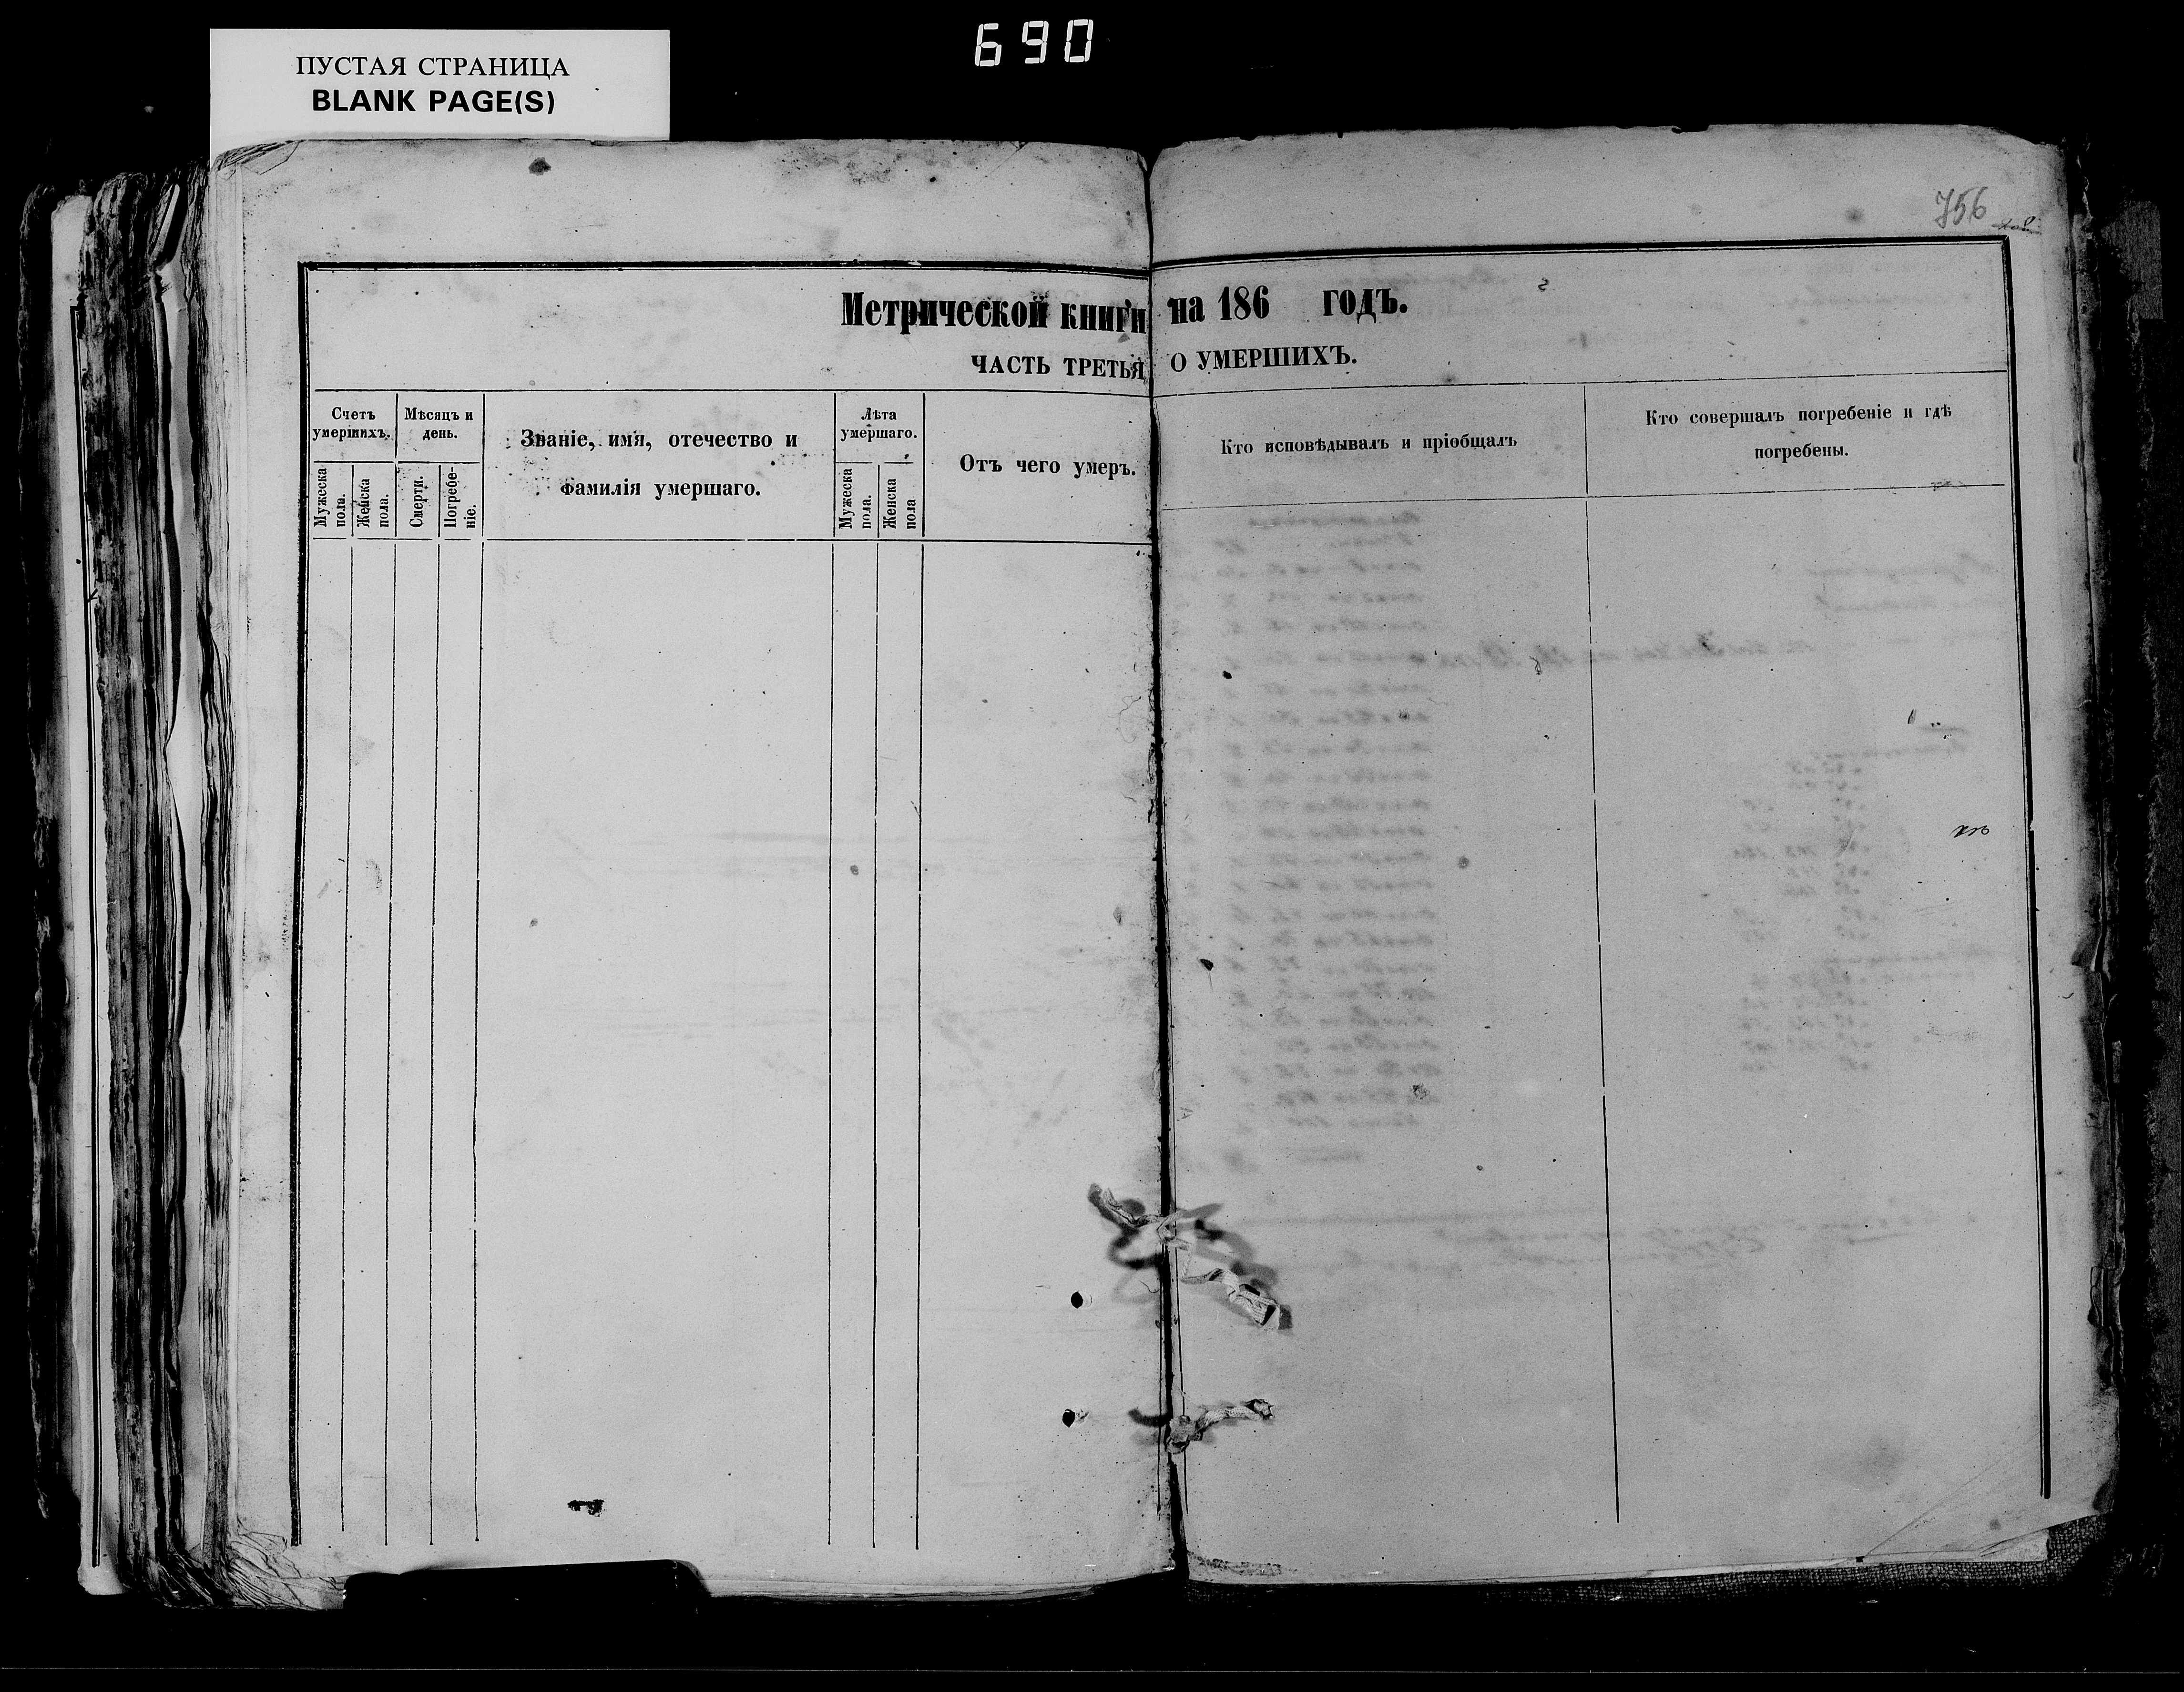 690
ПУСТАЯ СТРАНИЦА
BLANK PAGE(S)
756
Метрической книги на 186 годъ.
ЧАСТЬ ТРЕТЬЯ О УМЕРШИХЪ.
Счетъ умершихъ.
Мужеска пола.
Женска пола.
Мѣсяцъ и день.
Смерти.
Погребе-
ніе.
Званіе, имя, отечество и
фамилія умершаго.
Лѣта умершаго.
Мужеска пола.
Женска пола
Отъ чего умеръ.
Кто исповѣдывалъ и пріобщалъ
Кто совершалъ погребеніе и гдѣ
погребены.